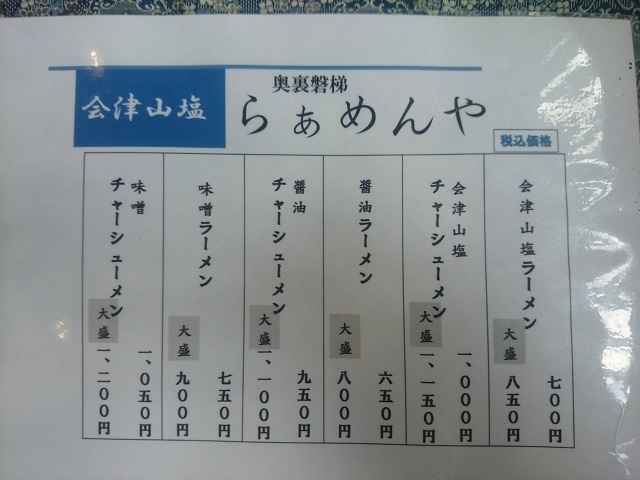 会津山塩
奥裏磐梯
らぁめんや
税込価格
会津山塩ラーメン
七〇〇円
大盛 八五〇円
会津山塩
チャーシューメン
一、〇〇〇円
大盛 一、一五〇円
醤油ラーメン
六五〇円
大盛 八〇〇円
醤油
チャーシューメン
九五〇円
大盛 一、一〇〇円
味噌ラーメン
七五〇円
大盛 九〇〇円
味噌
チャーシューメン
一、〇五〇円
大盛 一、二〇〇円